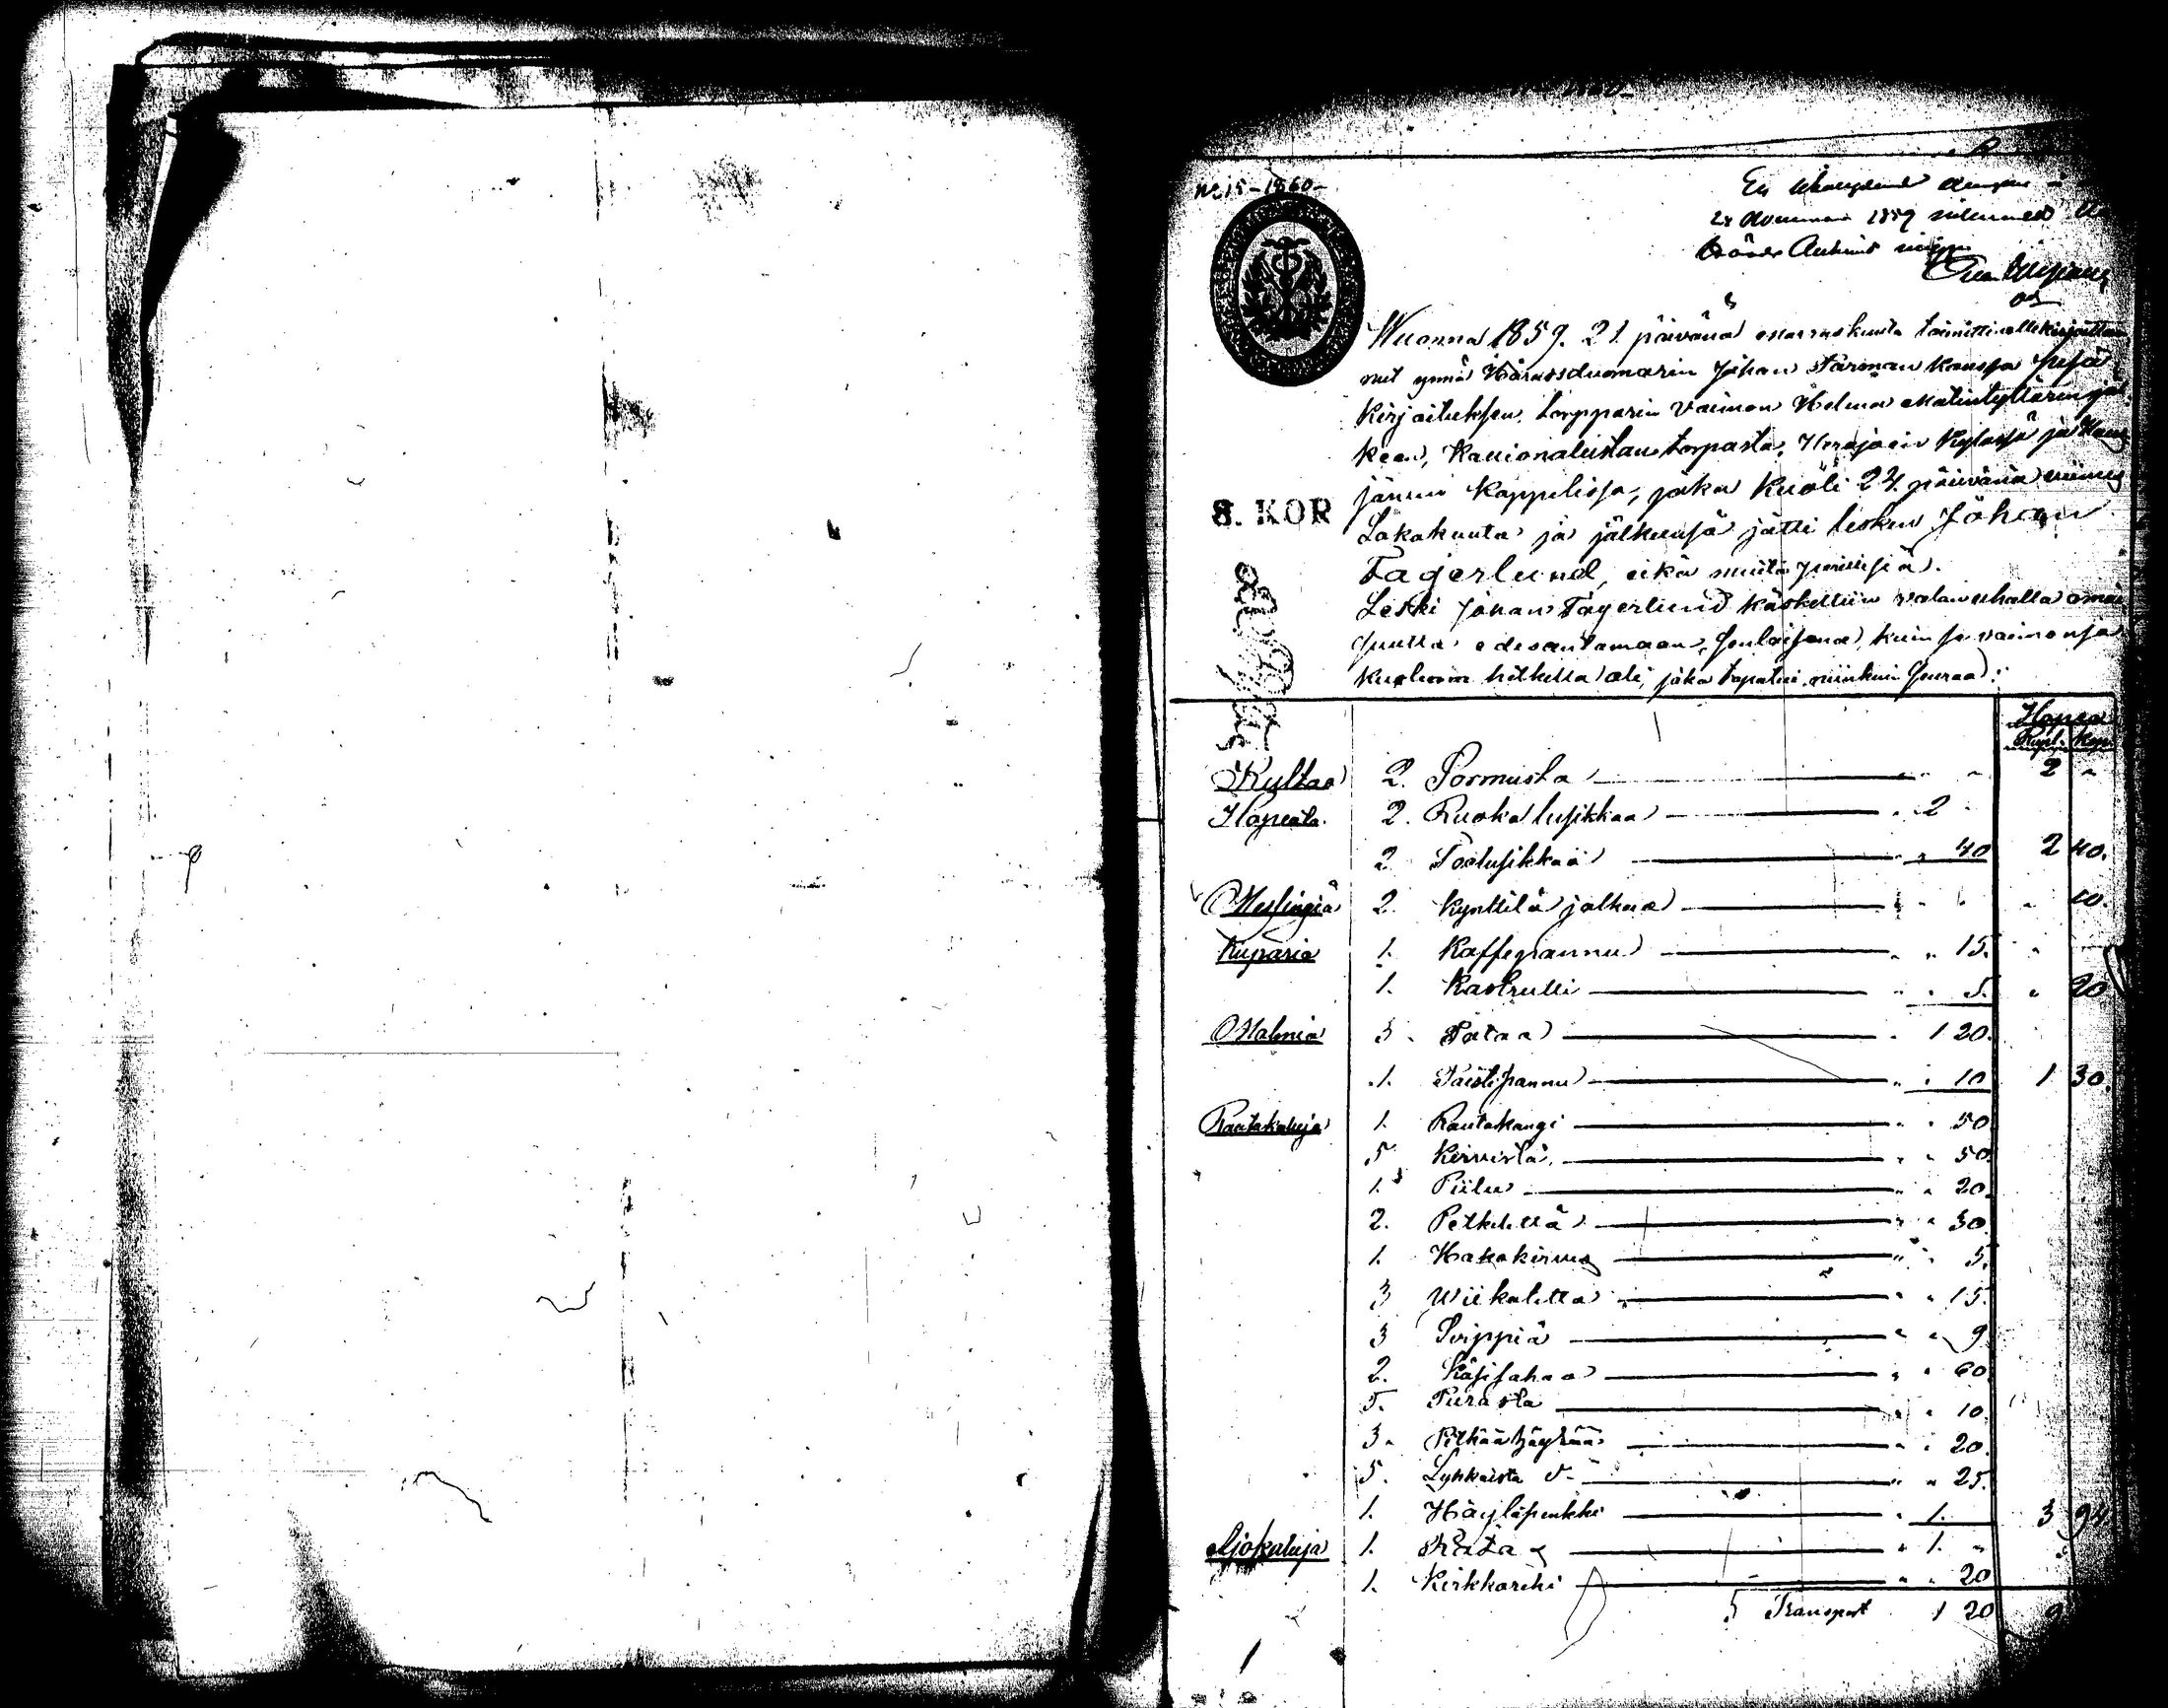 No 15 - 1860 -
28 1859
Wuonna 1859. 21 päivänä marraskuuta toimitti allekirjoitta
nut ynnä Härassduomarin Johan kanssa Pesä
Kirjoituksen Torpparin Vaimon Helena Matintyttären jäl
keen, torpasta, Herajoen Kylässä ja
Kappelissa, joka Kuoli 24 päivänä viime
Lokakuuta ja jälkeensä jätti lesken Johan
Fagerlund, eikä muita perillisiä.
Leski Johan Fagerlund käskettiin valan uhalla omai
suutta edesantamaan, senlaisena, kuin se vaimonsa
Kuoleman hetkellä oli, joka tapahtui niinkuin seuraa:
8. KOR
Hopea
Rupl. Kop.
Kultaa 2. Sormusta 2 "
Hopeata. 2. Ruoka lusikkaa " 2 "
2 Teelusikkaa " " 40 2 40.
Messingiä 2. Kynttilä jalkaa " 10.
Kuparia 1. Kaffepannu " " 15.
1. Kastrulli " " 5. " 20
Malmia 3. Pataa " 1 20.
1. Paistipannu " " 10 1 30.
Rautakaluja 1. Rautakangi " " 50
5 Kirvistä. " " 50.
1. Piilu " " 20.
2. Petkelettä " " 30
1. Hakokirves " " 5.
3 Wiikatetta " " 15.
3 Sirppiä " " 9
2. Käsisahaa " " 60.
5. Purasta " " 10
3. Pitkää höylää " " 20.
5. Lyhkäistä d- " " 25.
1. Höyläpenkki " 1. 3 94
Ajokaluja 1. Rätas " 1. "
1. Kirkkoreki " " 20
Transport 1 20